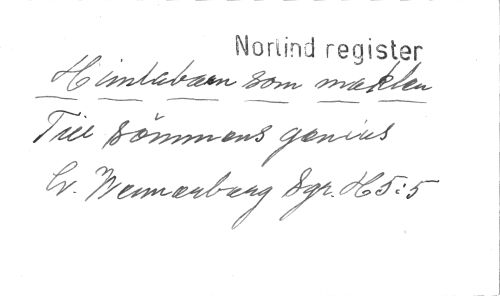 Norlind register
Himlabarn som makten
Till Sömnens genius
Gr. Wennerberg Sgr. H5:5